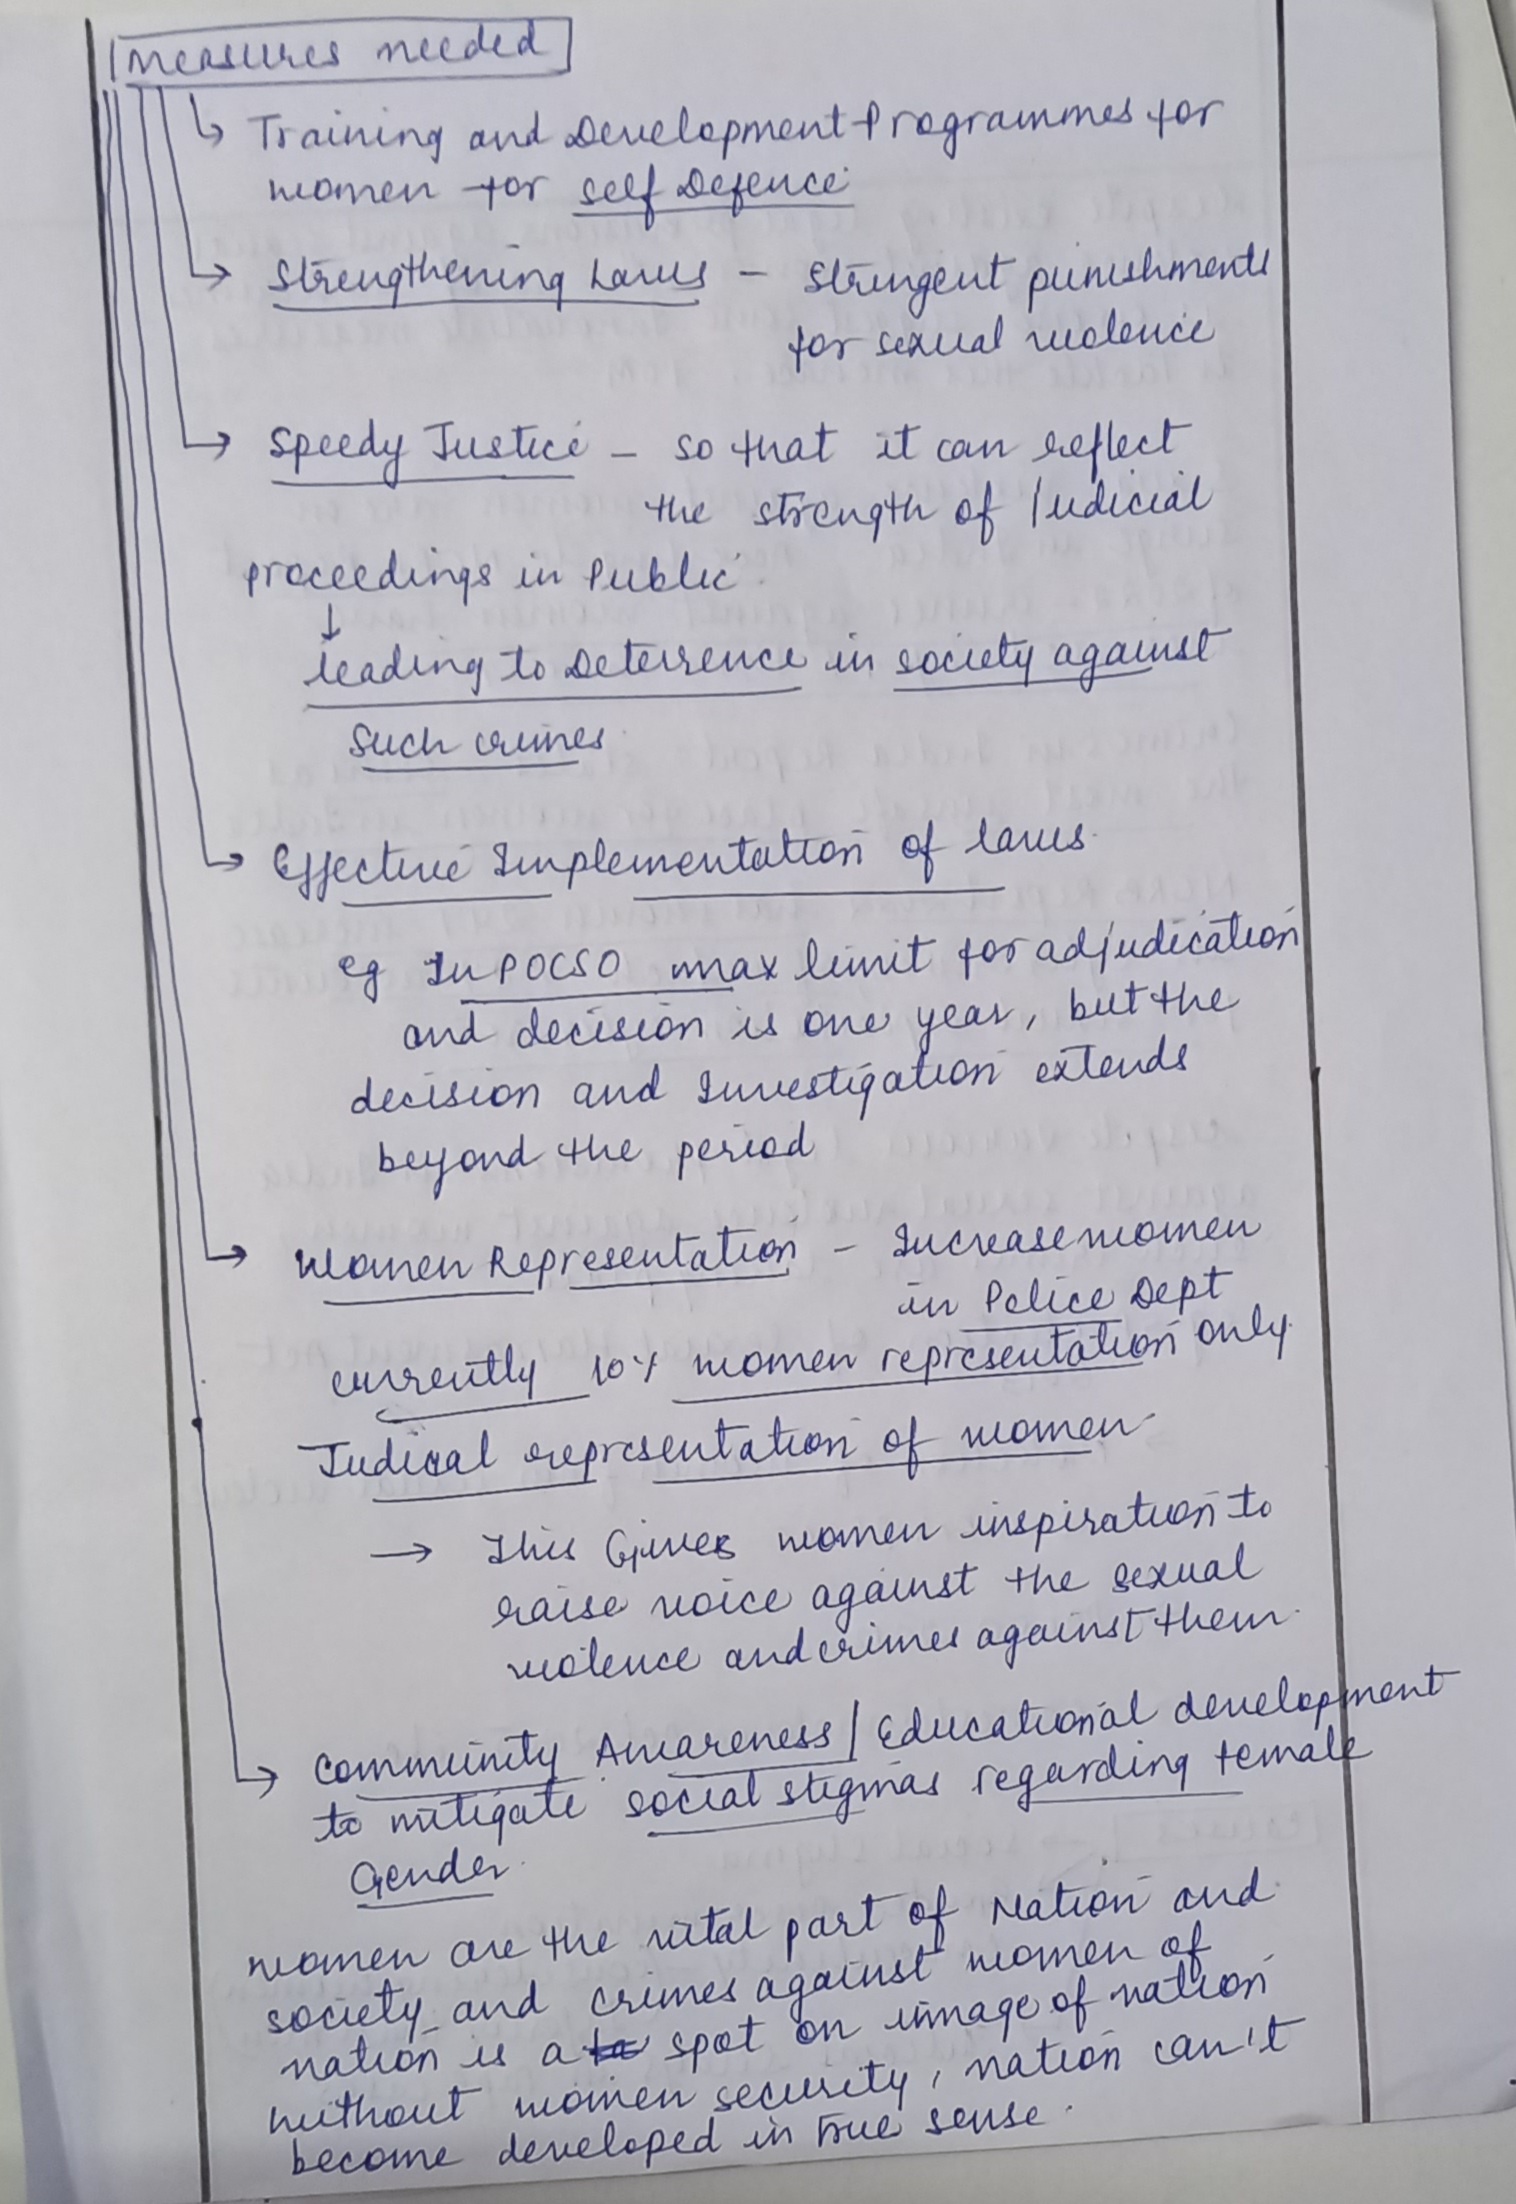 Measures needed
Training and Development Programmes for
women for Self Defence
Strengthening Laws – Stringent punishments
for sexual violence
Speedy Justice – so that it can reflect
the strength of Judicial
proceedings in Public
leading to Deterrence in society against
Such crimes
Effective Implementation of laws.
eg In POCSO max limit for adjudication
and decision is one year, but the
decision and Investigation extends
beyond the period
Women Representation – Increase women
in Police Dept
currently 10% women representation only
Judical representation of women
→ This Gives women inspiration to
raise voice against the sexual
violence and crimes against them.
Community Awareness / Educational development
to mitigate social stigmas regarding female
Gender.
women are the vital part of Nation and
society and crimes against women of
nation is a spot on image of nation
without women security, nation can't
become developed in true sense.